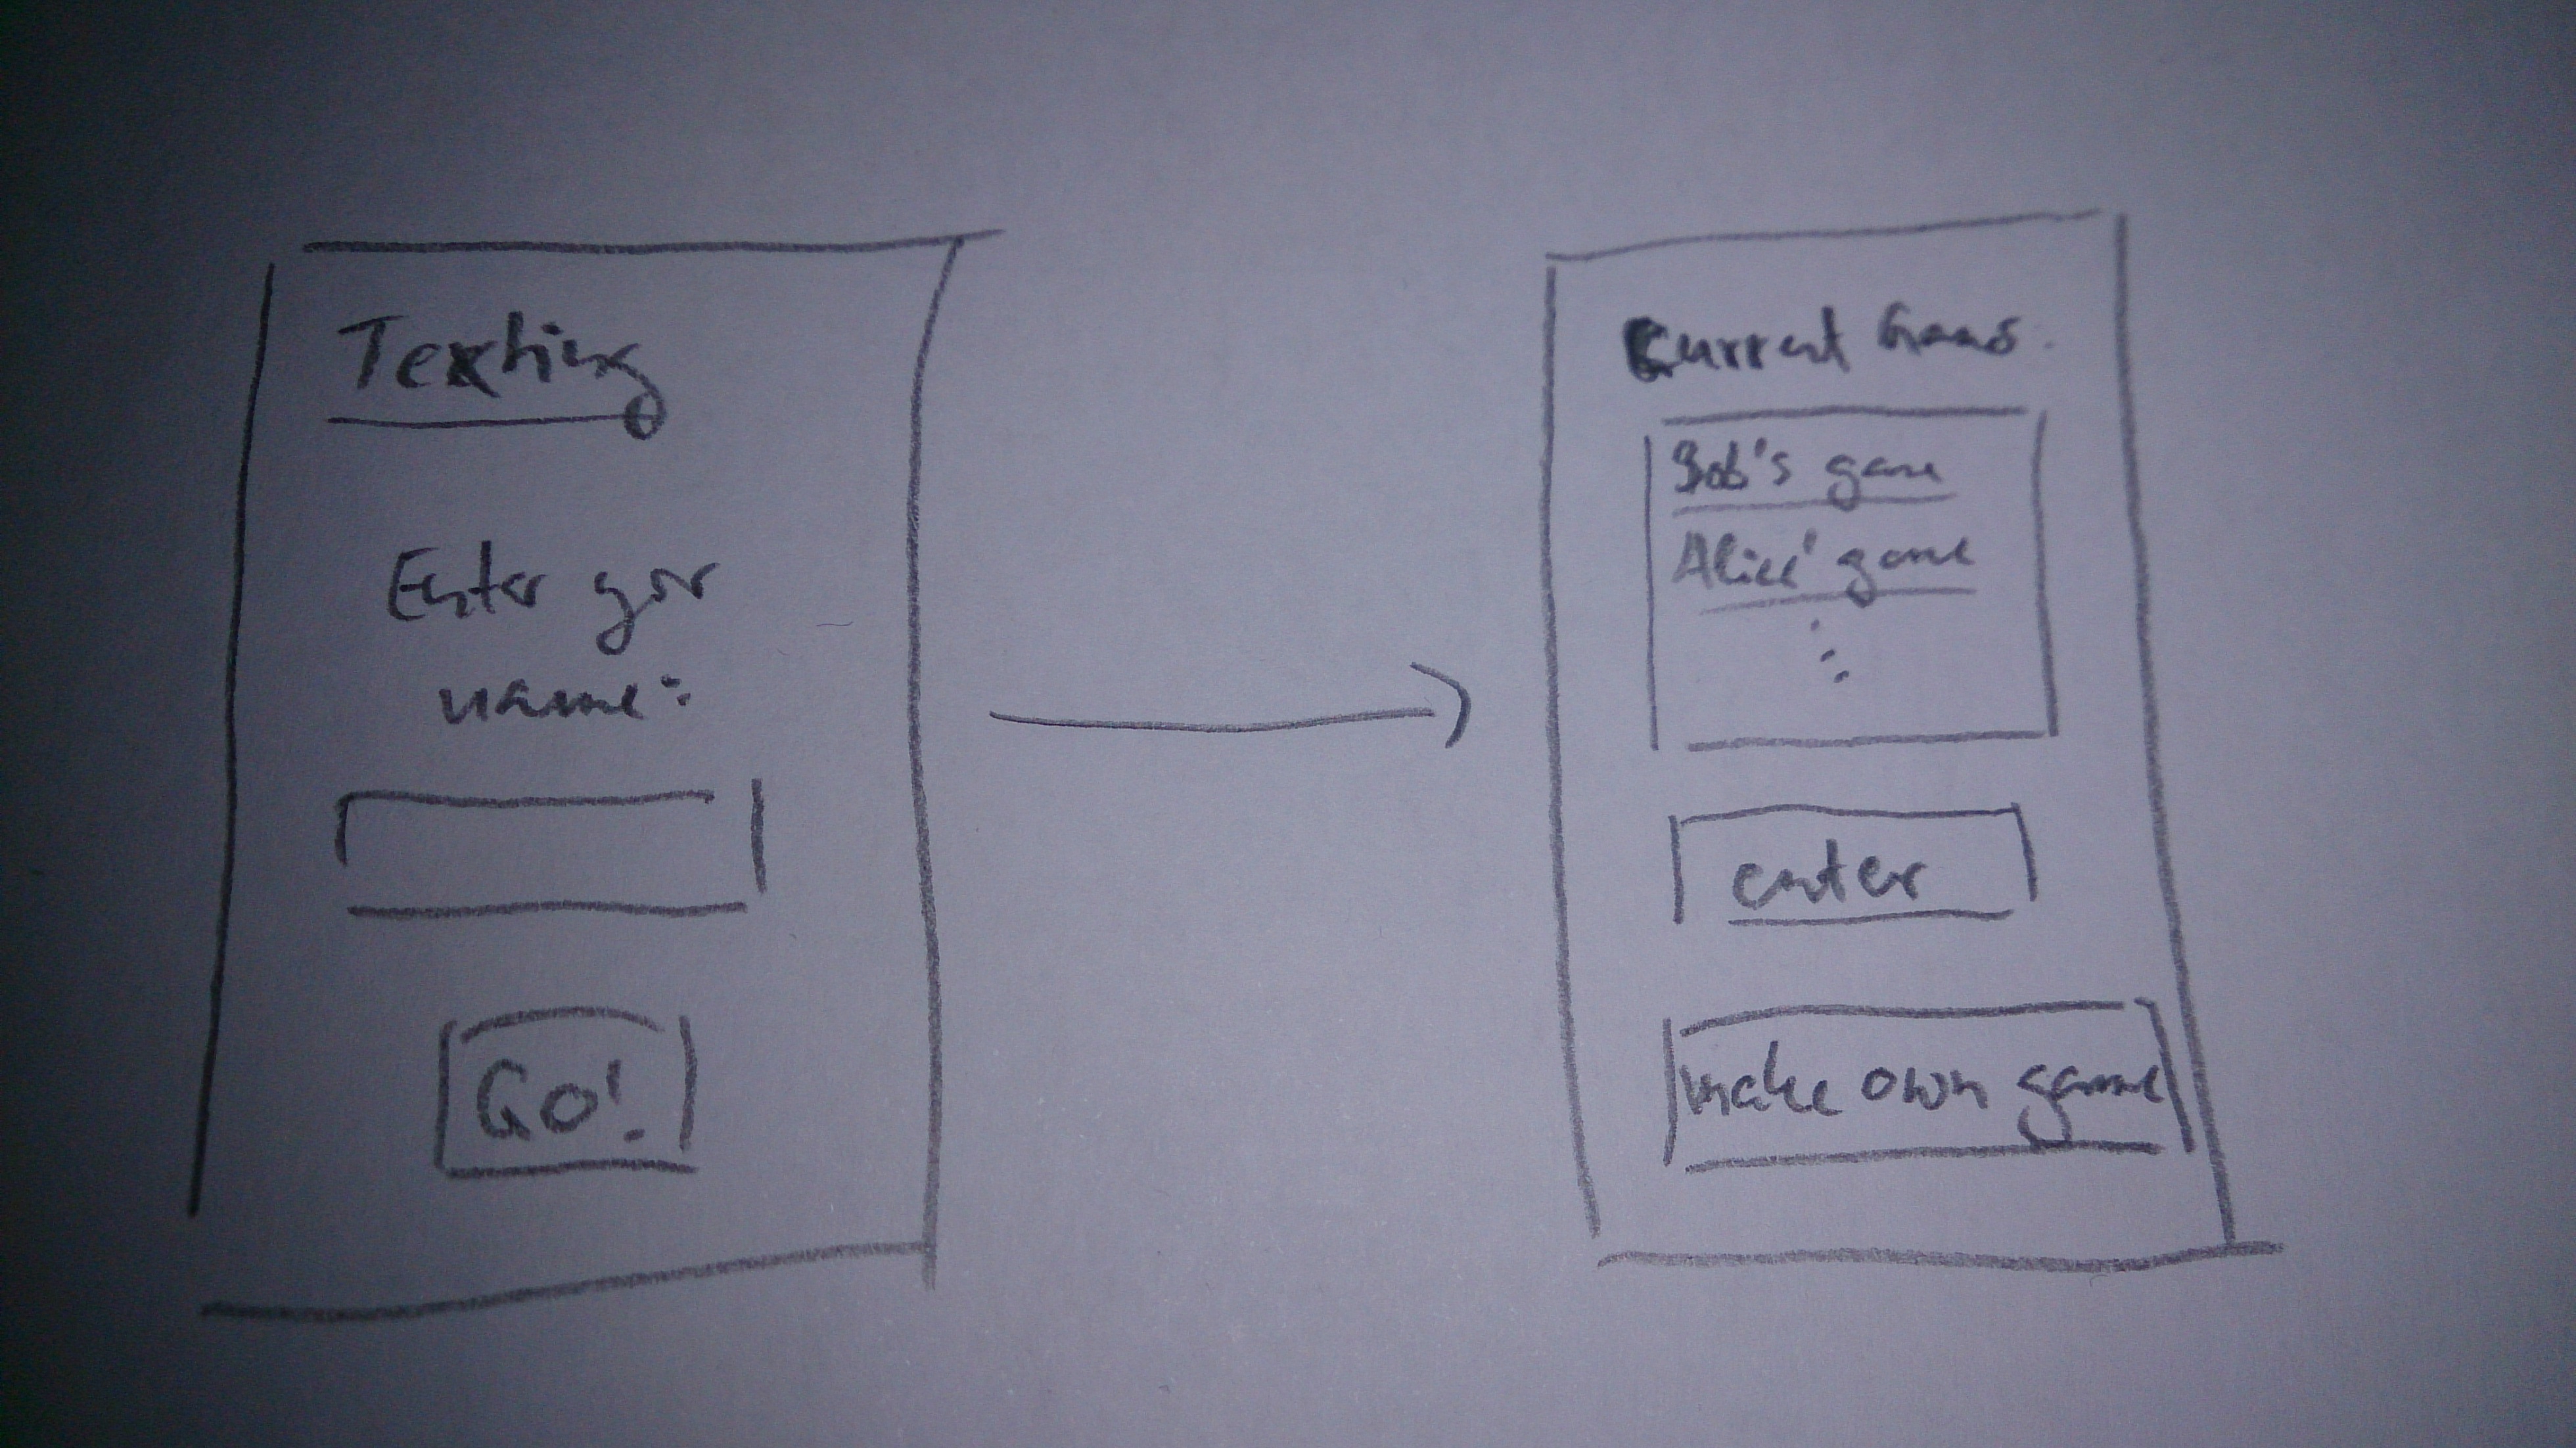 Texting
Enter yor
name:
Go!
Current
Bob's game
Alice' game
enter
make own game